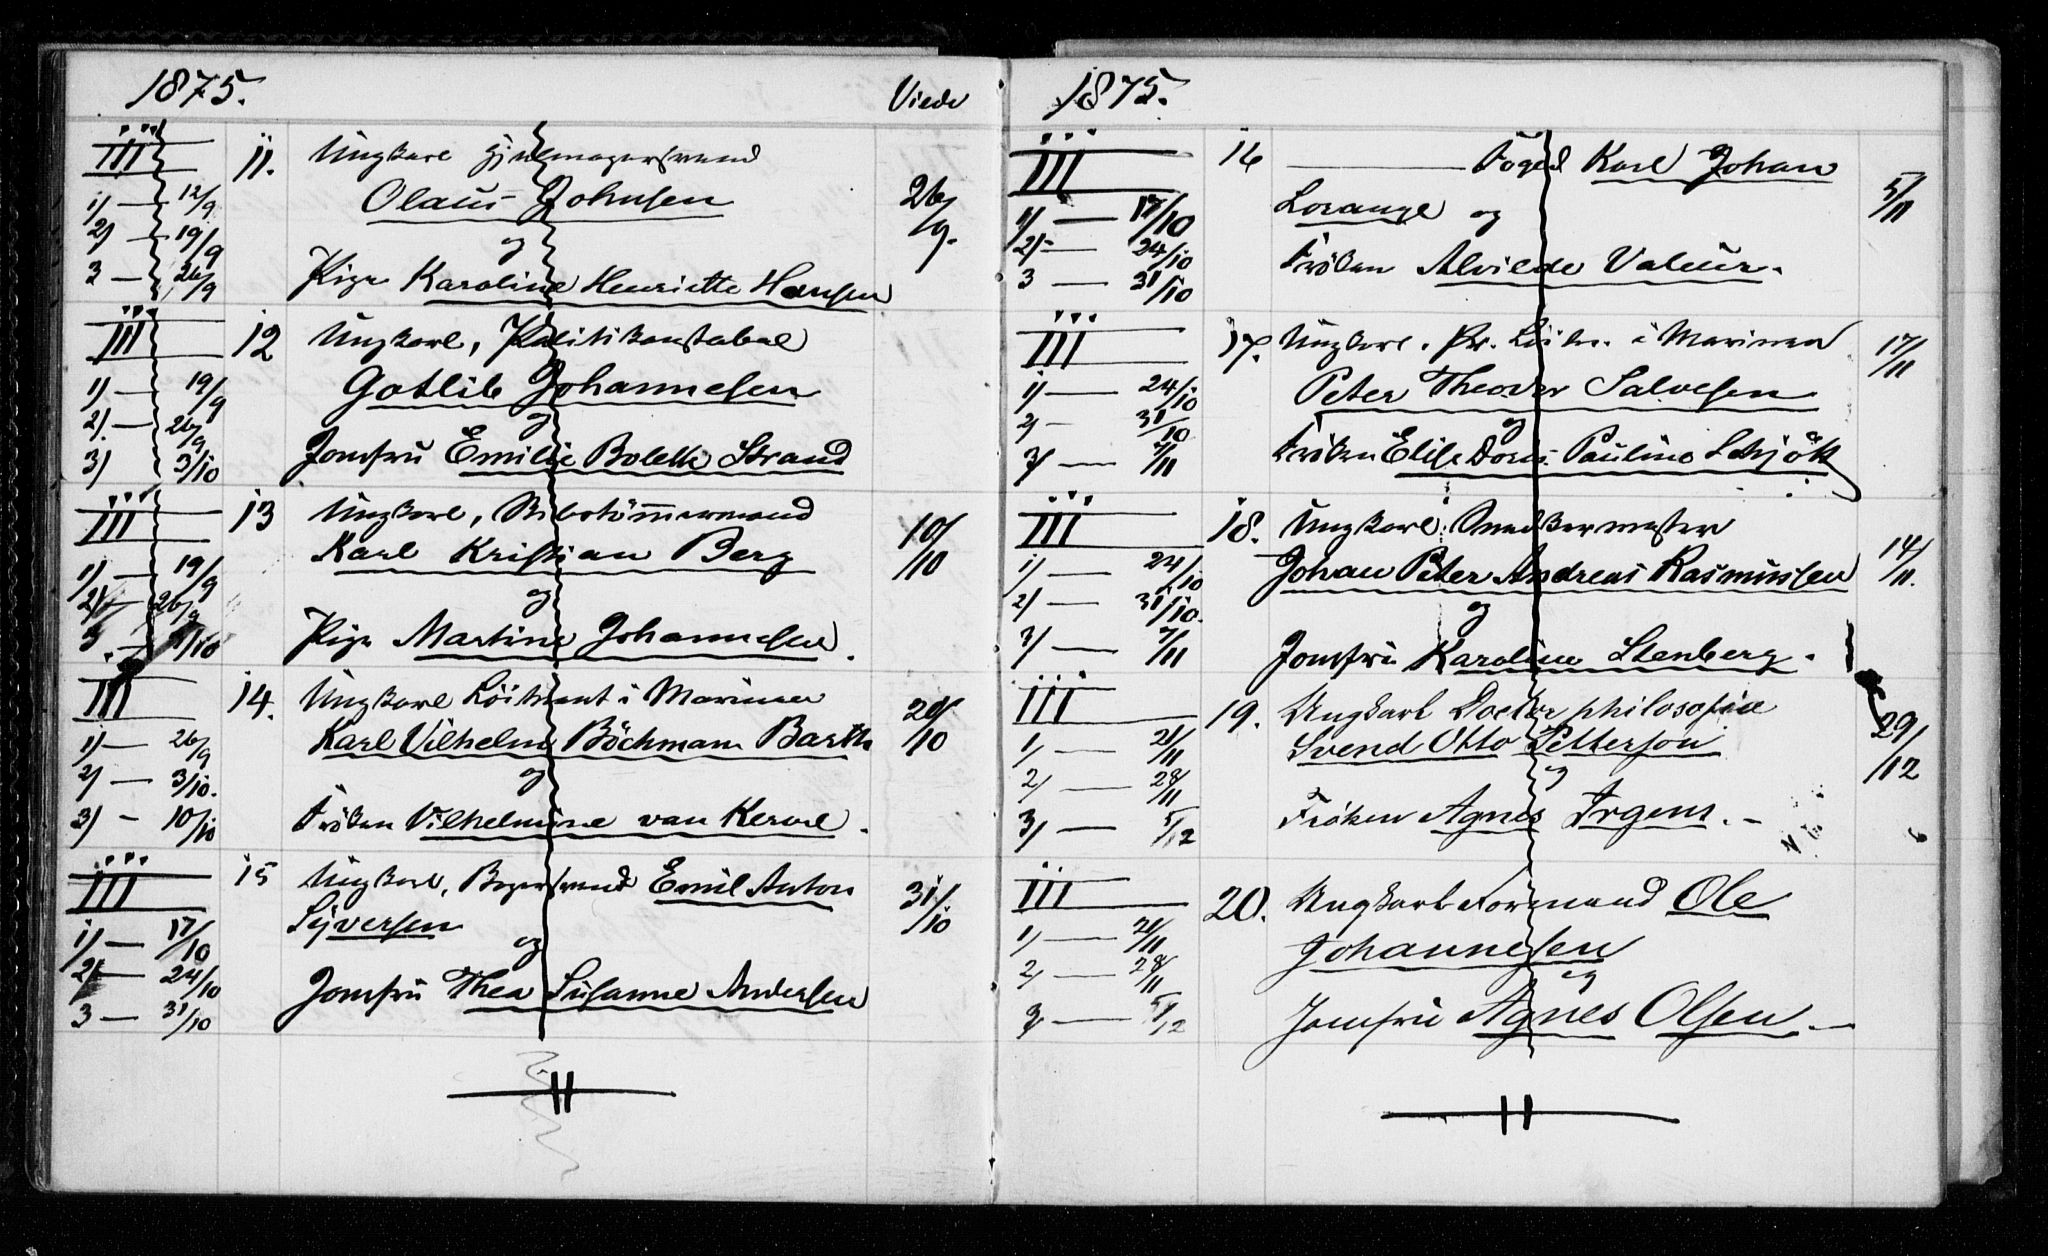 1875.
Viede
III
11. Ungkarl Hjulmagersvend
1) — 12/9
Olaus Johnsen
26/9.
2) — 19/9
og
3 — 26/9
Pige Karoline Henriette Hansen
III
12 Ungkarl, Politikonstabel
1) — 19/9
Gotlib Johannesen
2) — 26/9
og
3) 3/10
Jomfru Emilie Bolette Strand
III
13 Ungkarl,
1) — 19/9
Karl Kristian Berg
10/10
2) — 26/9
og
3 — /10
Pige Martine Johannesen.
III
14. Ungkarl Löitnant i Marinen
1) — 26/9
Karl Vilhelm Böckmann Barth
20/10
2) — 3/10.
og
3) – 10/10
Fröken Vilhelmine van Kervel.
III
15 Ungkarl, Bagersvend Emil Anton
Syversen
31/10
1) — 17/10
og
2) — 24/10
Jomfru Thea Susanne Andersen
3 — 31/10
1875.
III
16 — Foged Karl Johan
5/11
1) — 17/10
Lorange og
2) — 24/10
Fröken Alvilde Valeur.
3 — 31/10
III
17. Ungkarl. Pr. Löitn. i Marinen
17/11
1) — 24/10
Peter Theodor Salvesen
2) – 31/10
og
3) — 7/11
Fröken Elise Doris Pauline Schjött
III
18. Ungkarl Snedkermester
1) — 24/10
Johan Peter Andreas Rasmussen
14/11.
2) — 31/10.
og
3) — 7/11
Jomfru Karoline Stenberg.
III
19. Ungkarl Doctor philosofiæ
1) — 21/11
Svend Otto Petterson
29/12
2) — 28/11
og
3) — 5/12
Frøken Agnes Irgens. –
III
20. Ungkarl Formand Ole
1) — 21/11
Johannesen
2) — 28/11
og
3) — 5/12
Jomfru Agnes Olsen. —